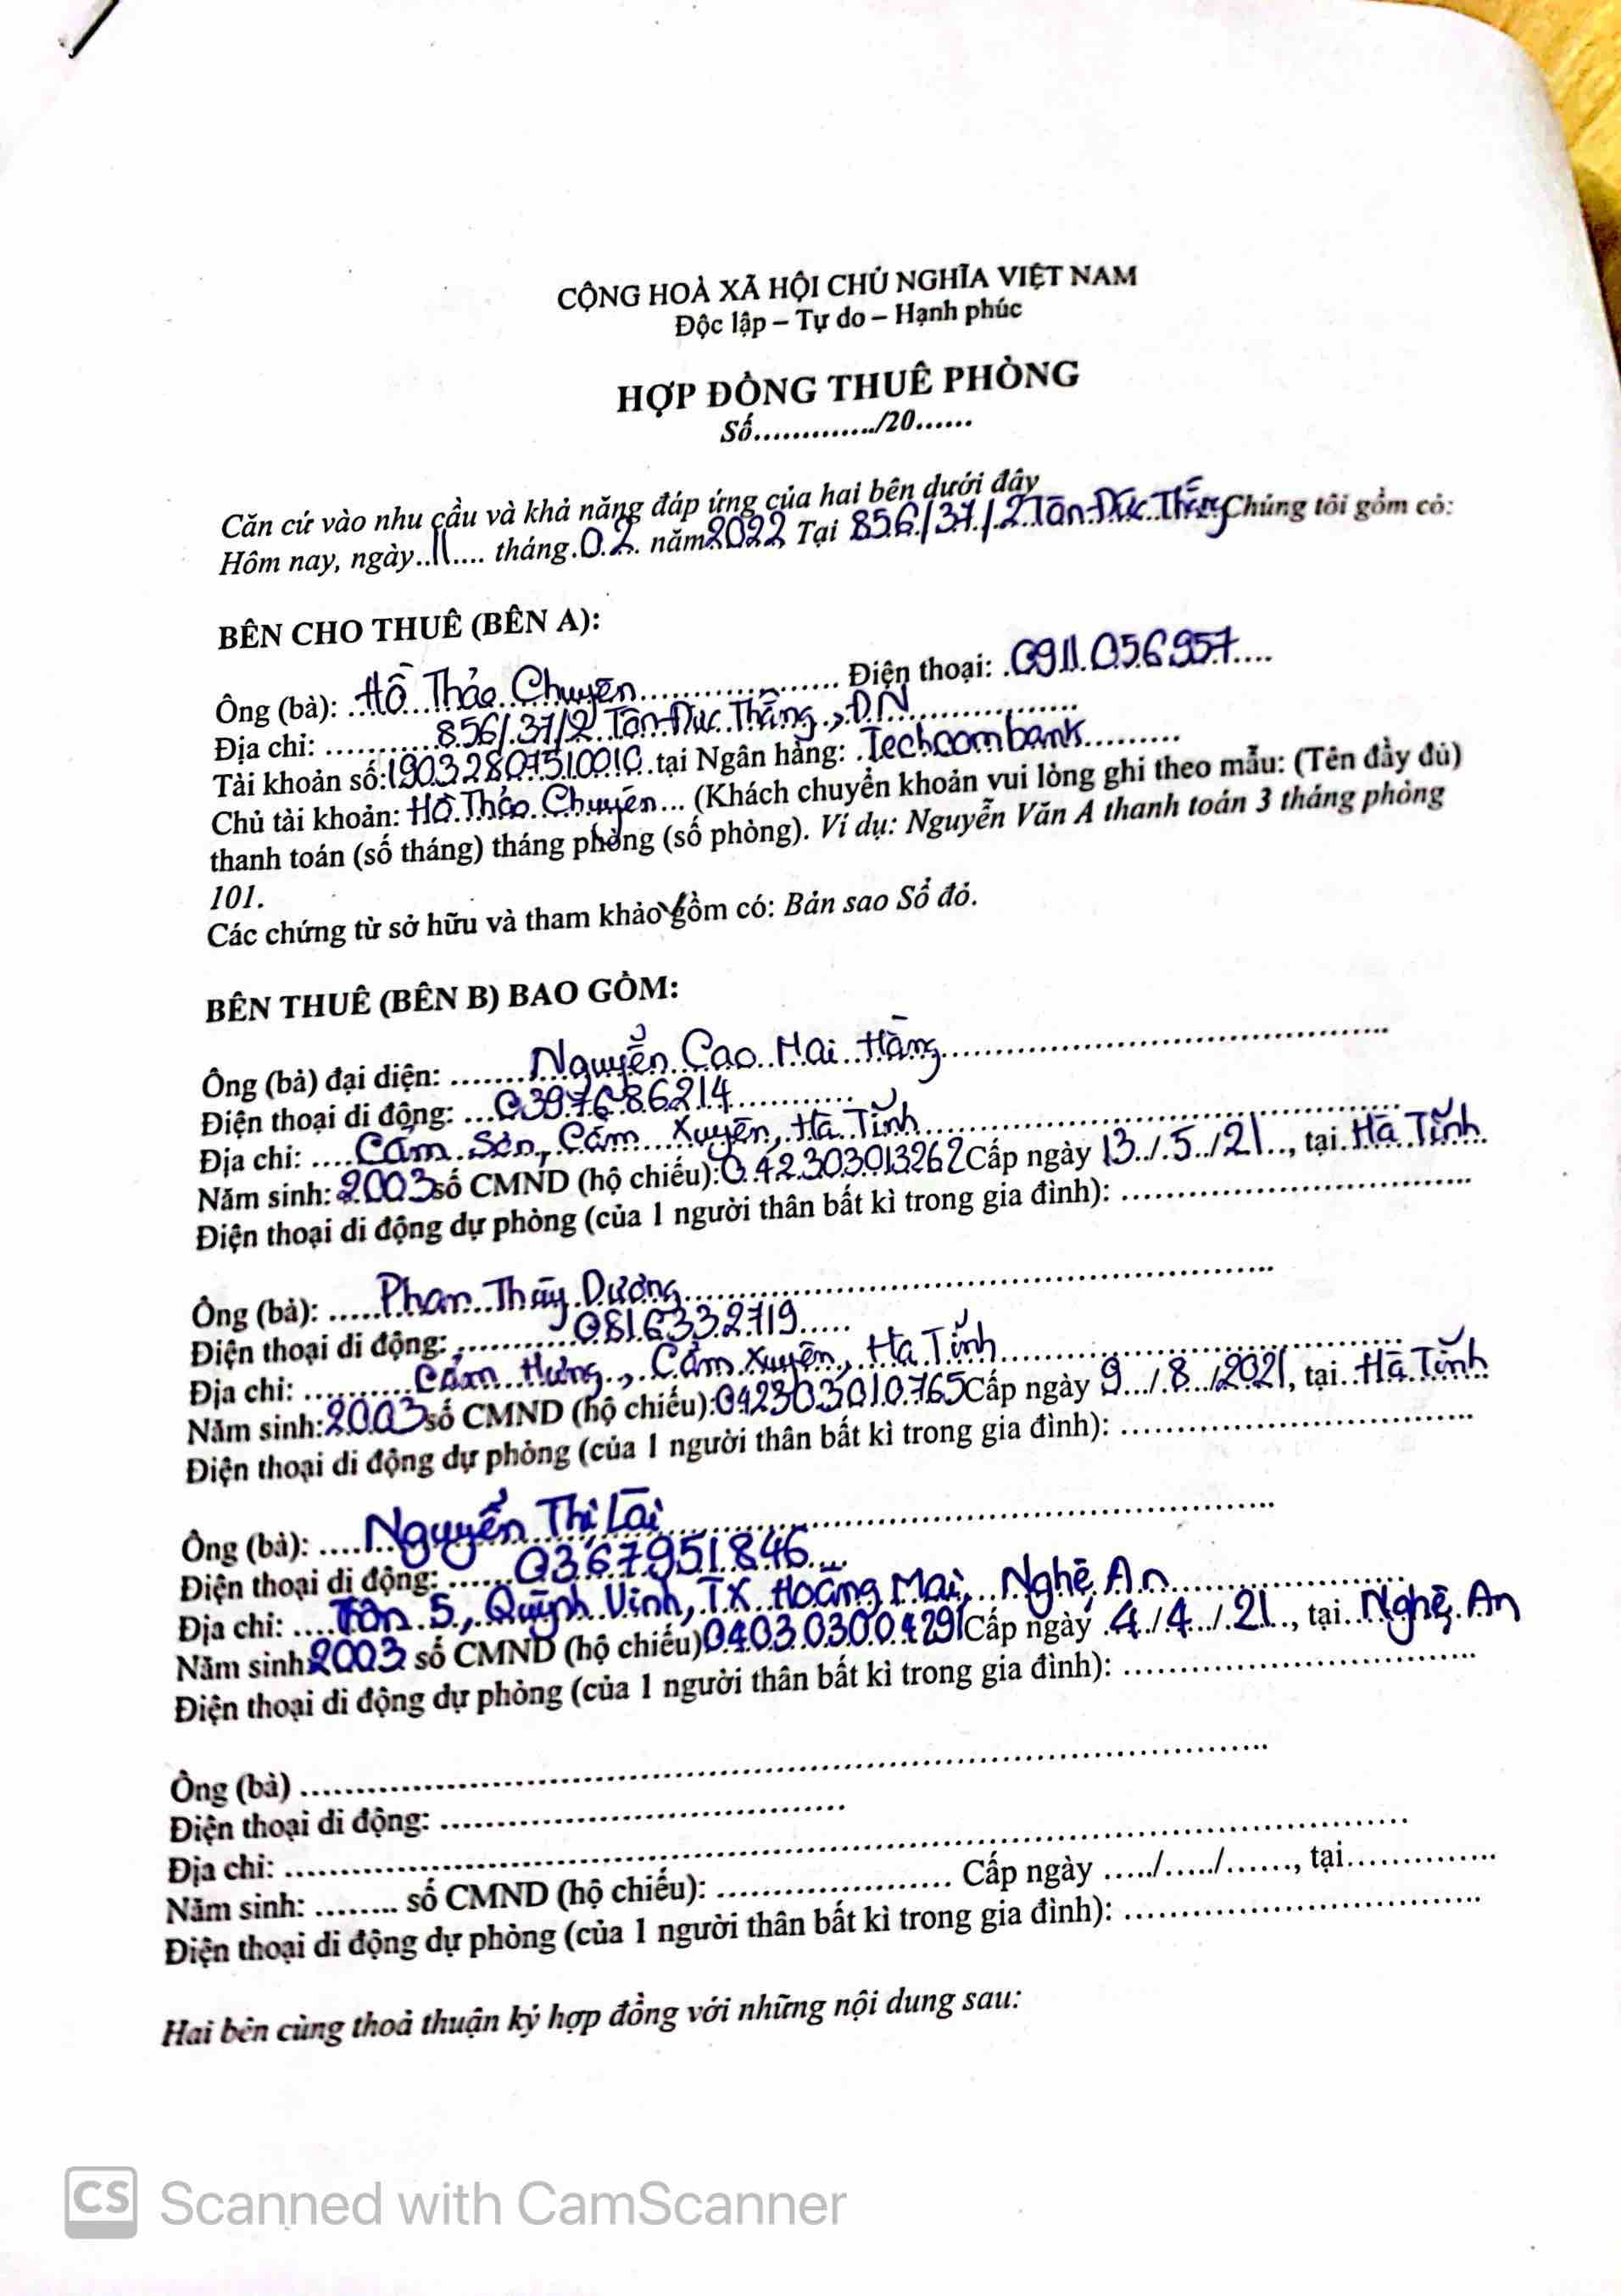 CỘNG HOÀ XÃ HỘI CHỦ NGHĨA VIỆT NAM
Độc lập – Tự do – Hạnh phúc
HỢP ĐỒNG THUÊ PHÒNG
Số............./20......
Căn cứ vào nhu cầu và khả năng đáp ứng của hai bên dưới đây
Hôm nay, ngày..11.... tháng.02. năm 2022 Tại 856/37/2 Tôn Đức Thắng Chúng tôi gồm có:
BÊN CHO THUÊ (BÊN A):
Ông (bà): Hồ Thảo Chuyên.................... Điện thoại: .0911.056957....
Địa chỉ: ...........856/37/2 Tôn Đức Thắng, ĐN.................
Tài khoản số: 19032807510010 tại Ngân hàng: .Techcombank.........
Chủ tài khoản: Hồ Thảo Chuyên... (Khách chuyển khoản vui lòng ghi theo mẫu: (Tên đầy đủ)
thanh toán (số tháng) tháng phòng (số phòng). Ví dụ: Nguyễn Văn A thanh toán 3 tháng phòng
101.
Các chứng từ sở hữu và tham khảo gồm có: Bản sao Sổ đỏ.
BÊN THUÊ (BÊN B) BAO GỒM:
Ông (bà) đại diện: .......Nguyễn Cao Mai Hằng.............................................
Điện thoại di động: ...0397686214............
Địa chỉ: ....Cẩm Sơn, Cẩm Xuyên, Hà Tĩnh.............................................
Năm sinh: 2003 số CMND (hộ chiếu): 042303013262 Cấp ngày 13../.5../21..., tại.Hà Tĩnh.
Điện thoại di động dự phòng (của 1 người thân bất kì trong gia đình): ..................................
Ông (bà): .....Phan Thùy Dương.......................................................
Điện thoại di động: ...........0816332719.....
Địa chỉ: ..........Cẩm Hưng, Cẩm Xuyên, Hà Tĩnh.......................................
Năm sinh: 2003 số CMND (hộ chiếu): 042303010765 Cấp ngày 9.../.8.../2021, tại..Hà Tĩnh
Điện thoại di động dự phòng (của 1 người thân bất kì trong gia đình): ..................................
Ông (bà): ....Nguyễn Thị Lài.......................................................
Điện thoại di động: ......0367951846....
Địa chỉ: ....Tân 5, Quỳnh Vinh, TX Hoàng Mai, Nghệ An......................
Năm sinh: 2003 số CMND (hộ chiếu) Cấp ngày .4./4../.21..., tại..Nghệ An
Điện thoại di động dự phòng (của 1 người thân bất kì trong gia đình): ..................................
Ông (bà) ..........................................................................................
Điện thoại di động: ........................................
Địa chỉ: ..............................................................................................................
Năm sinh: ........ số CMND (hộ chiếu): ....................... Cấp ngày ...../...../......, tại..............
Điện thoại di động dự phòng (của 1 người thân bất kì trong gia đình): ..................................
Hai bên cùng thoả thuận ký hợp đồng với những nội dung sau:
CS Scanned with CamScanner